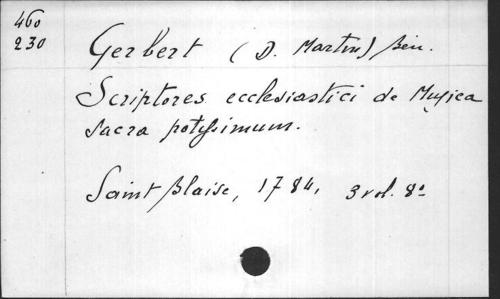 460
230
Gerbert (D. Martin) Bén.
Scriptores ecclesiastici de Musica
sacra potissimum.
Saint Blaise, 1784, 3 vol. 8°